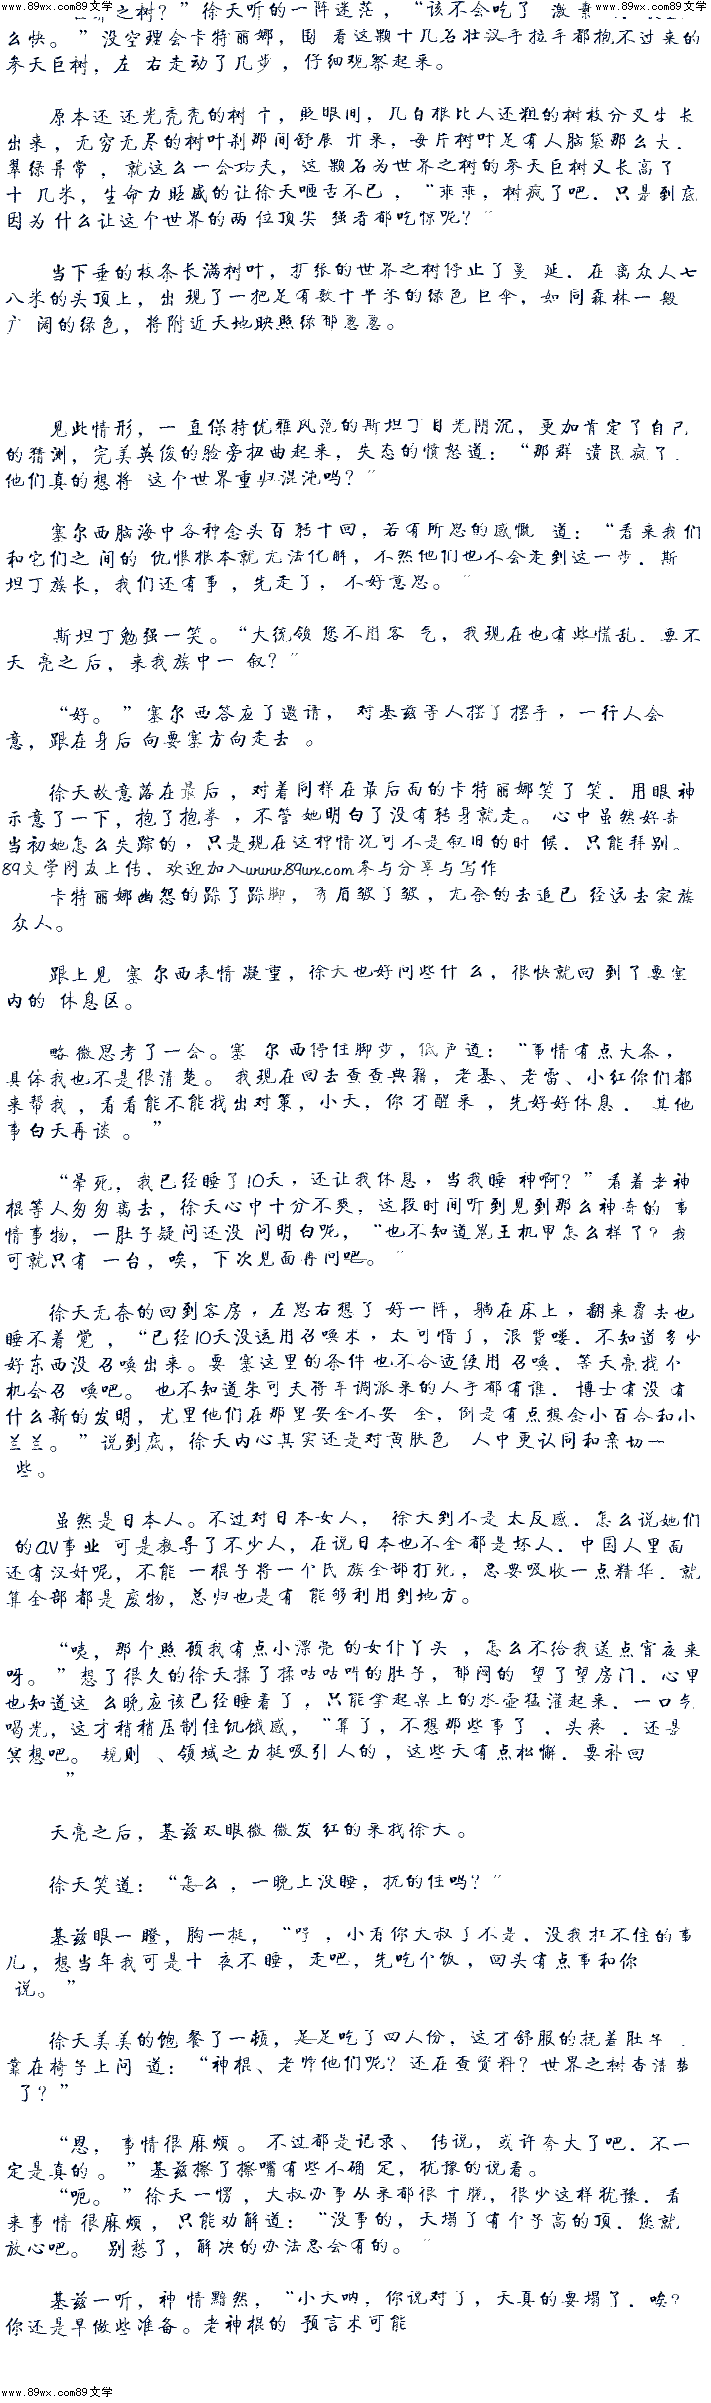 www.89wx.com89文学 www.89wx.com89文学
世界之树？”徐天听的一阵迷茫，“该不会吃了 激素
么快。”没空理会卡特丽娜，围 看这颗十几名壮汉手拉手都抱不过来的
参天巨树，左 右走动了几步，仔细观察起来。
原本还 还光秃秃的树 干，眨眼间，几百根比人还粗的树枝分叉生 长
出来，无穷无尽的树叶刹那间舒展 开来，每片树叶足有人脑袋那么大．
翠绿异常 ，就这么一会功夫，这 颗名为世界之树的参天巨树又长高了
十 几米，生命力旺盛的让徐天咂舌不已 ，“乖乖，树疯了吧．只是到底
因为 什么让这个世界的两 位顶尖 强者都吃惊呢？”
当下垂的枝条长满树叶，扩张的世界之树停止了蔓 延．在 离众人七
八米的头顶上，出 现了一把足有数十平米的绿色 巨伞，如 同森林一 般
广 阔的绿色，将附近天地映照绿郁葱葱。
见此情形，一 直保持优雅风范的斯坦丁目光阴沉，更加肯定了自己
的猜测，完美英俊的脸旁扭曲起来，失态的愤怒道：“那群 遗民疯了．
他们真的想将 这个世界重归混沌吗？”
塞尔西脑海中各种念头百 转千回，若有所思的感慨 道：“看来我们
和它们之 间的 仇恨根本就无法化解，不然他们也不会走到这一步．斯
坦丁族长，我们还有事 ，先走了，不好意思。”
斯坦丁勉强一笑。“大统领 您不用客 气，我现在也有些慌乱．要不
天 亮之后，来我族中一 叙？”
“好。”塞尔 西答应了邀请， 对基兹等人摆了摆手 ，一行人会
意，跟在身后 向要塞方向走去 。
徐天故意落在最后 ，对着同样在最后面的卡特丽娜笑了 笑．用眼神
示意了一下，抱了抱拳 ，不管 她明白了没有转身就走。 心中虽然好奇
当初她怎么失踪的 ，只是现在这种情况可不是叙旧的时 候．只能拜别。
89文学网友上传，欢迎加入www.89wx.com参与分享与写作
卡特丽娜幽怨的跺了跺脚，秀眉皱了皱，无奈的去追已 经远去家族
众人。
跟上见 塞 尔西表情 凝重，徐天也好问些什 么，很快就回 到了要塞
内的 休息区。
略 微思考了一会。塞 尔西停住脚步，低声道：“事情有点大条，
具体我也不是很清楚。 我现在回去查查典籍，老基、老雷、小红你们都
来帮我 ，看看能不能找出对策，小天，你才醒来 ，先好好休息． 其他
事白天再谈 。”
“晕死，我已经睡了10天，还让我休息，当我睡 神啊？”看着老神
棍等人匆匆离去，徐天心中十分不爽，这段时间听到见到那么神奇的 事
情事物，一肚子疑问还没 问明白呢，“也不知道鬼王机甲怎么样了？我
可就只有 一台，唉，下次见面再问吧。”
徐天无奈的回到客房，左思右想了 好一阵，躺在床上，翻来覆去也
睡不着 觉 ，“已经10天没运用召唤术，太 可惜了，浪 费喽．不知道多少
好东西没 召唤出来。要 塞这里的条件 也不合适使用 召唤．等天亮找个
机会召 唤吧。也不知道朱可夫将军调派来的人手都有谁．博士有没 有
什么新的发明，尤里他们在那里安全不安 全，倒是有点想念小百合和小
兰兰。”说到底，徐天内心其实还是对黄肤色 人中更认同和亲切一
些。
虽然是日本人。不过对日本女人， 徐天到不是 太反感．怎么说她们
的AV事业 可是教导了不少人，在说日本也不全 都是坏人．中国人里面
还有汉奸呢，不能 一棍子将一个民 族全部打死，总要吸收一点精华．就
算全部 都是 废物，总归也是有 能够利用到地方。
“咦，那个照 顾我有点小漂亮 的女仆丫头 ，怎么不给我送点宵夜来
呀。”想了很久的徐天揉了 揉咕咕叫的肚子，郁闷的 望了望房门．心里
也知道这 么晚应该已经睡着了 ，只能拿起桌上的水壶猛灌起来．一口气
喝光，这才稍稍压制住饥饿感，“算了，不想那些事了 ．头疼 ．还是
冥想吧。 规则 、领域之力挺吸引人的 ，这些天有点松懈．要补回
”
天亮之后，基兹双眼微微发 红的来找徐天 。
徐天笑道：“怎么 ，一晚上没睡，扰的住吗？”
基兹眼一 瞪，胸一挺，“哼 ，小看你大叔了不是．没我扛不住的事
儿 ，想当年我可是十 夜不 睡，走吧，先吃个饭 ，回头有点事和你
说。”
徐天美美的饱 餐了一顿，足足吃了四人份，这才舒服的抚着肚子 ．
靠在椅子上问 道：“神棍、老师他们呢？还在查资料？世界之树查清楚
了？”
“恩， 事情很麻烦 。不过都是记录、 传说，或许夸大了吧．不一
定是真的 。”基兹擦了擦嘴有些不确 定，犹豫的说着。
“呃。”徐天 一愣 ，大叔办事从来都很 干脆，很少这样犹豫．看
来事 情 很麻烦 ， 只能劝解道：“没事的，天塌了有个子高的顶．您就
放心吧。 别愁了，解决的办法总会有的。”
基兹一听，神 情黯然，“小天呐，你说对了，天真的要塌了．唉？
你还是早做些准备。老神棍的 预言术可能
www.89wx.com89文学